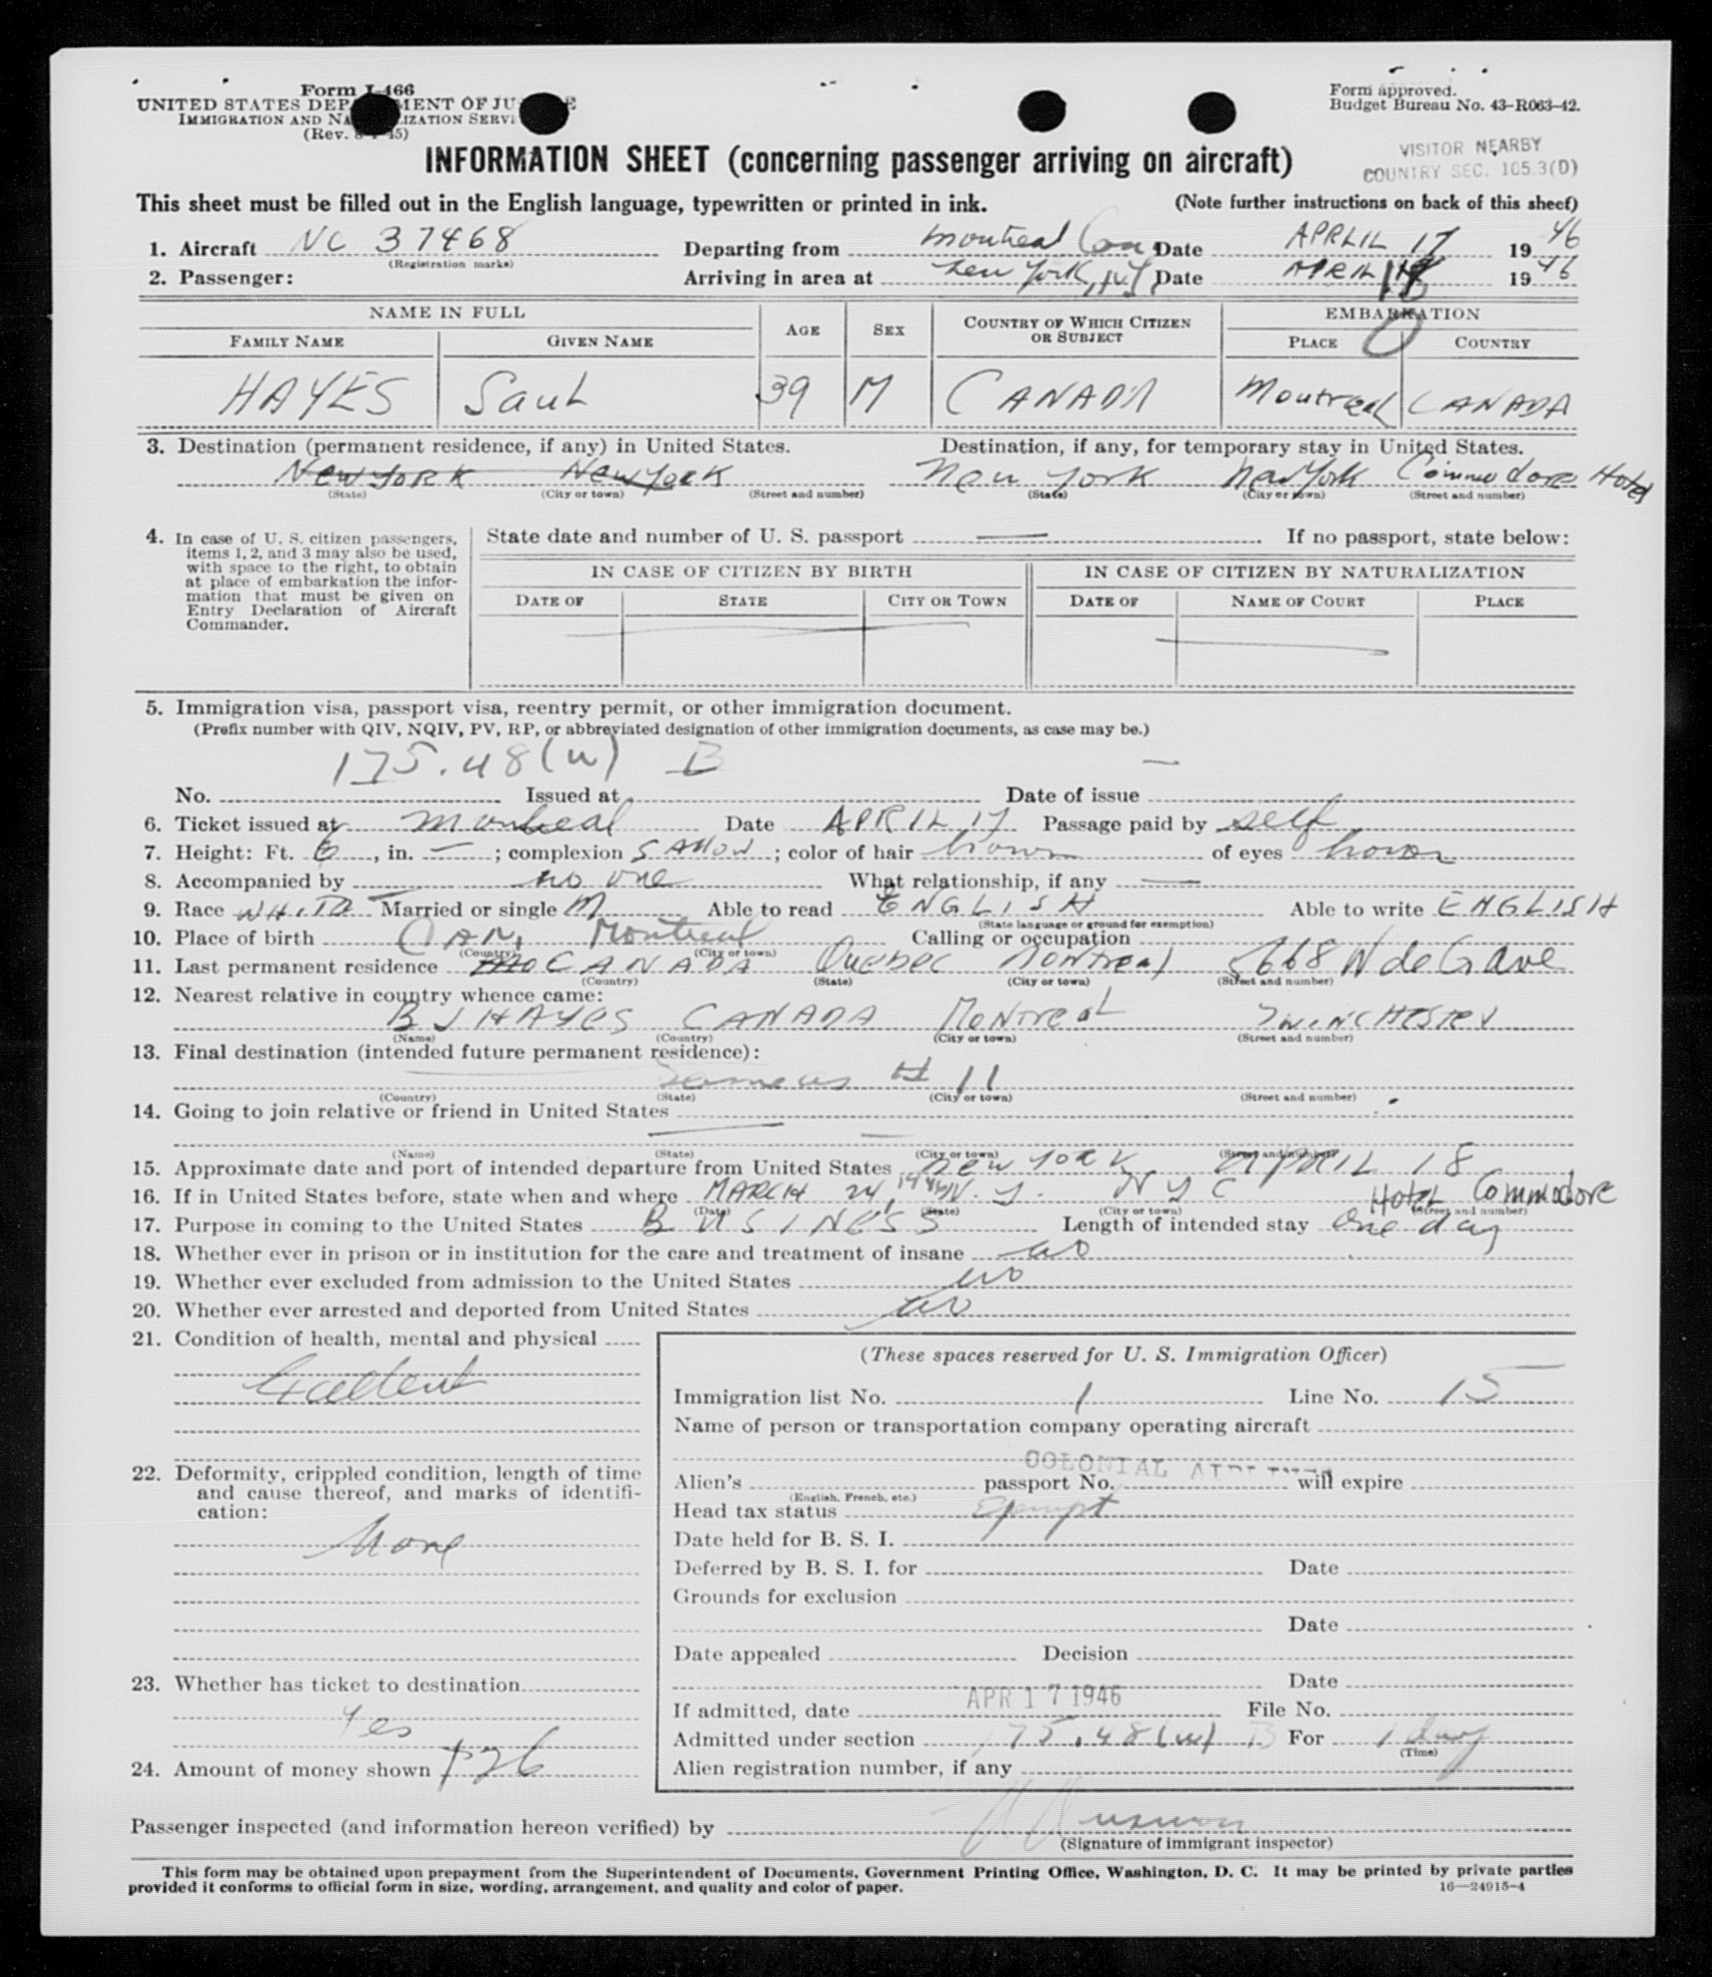 Form I-466
UNITED STATES DEPARTMENT OF JUSTICE
IMMIGRATION AND NATURALIZATION SERVICE
(Rev. 45)
Form approved.
Budget Bureau No. 43-R063-42.
VISITOR NEARBY
COUNTRY SEC. 105.3(D)
INFORMATION SHEET (concerning passenger arriving on aircraft)
This sheet must be filled out in the English language, typewritten or printed in ink. (Note further instructions on back of this sheet)
1. Aircraft NC 37468 Departing from Montreal Can Date APRLIL 17 19 46
(Registration marks)
2. Passenger: Arriving in area at New York, N.Y. Date APRIL 19 46
NAME IN FULL AGE SEX COUNTRY OF WHICH CITIZEN OR SUBJECT EMBARKATION
FAMILY NAME GIVEN NAME PLACE COUNTRY
HAYES SauL 39 M CANADA Montreal CANADA
3. Destination (permanent residence, if any) in United States. Destination, if any, for temporary stay in United States.
New YORK New York New York New York Commodore Hotel
(State) (City or town) (Street and number) (State) (City or town) (Street and number)
4. In case of U. S. citizen passengers, items 1, 2, and 3 may also be used, with space to the right, to obtain at place of embarkation the information that must be given on Entry Declaration of Aircraft Commander.
State date and number of U. S. passport — If no passport, state below:
IN CASE OF CITIZEN BY BIRTH IN CASE OF CITIZEN BY NATURALIZATION
DATE OF STATE CITY OR TOWN DATE OF NAME OF COURT PLACE
5. Immigration visa, passport visa, reentry permit, or other immigration document.
(Prefix number with QIV, NQIV, PV, RP, or abbreviated designation of other immigration documents, as case may be.)
175.48(w) B —
No. Issued at Date of issue
6. Ticket issued at Montreal Date APRIL 17 Passage paid by self
7. Height: Ft. 6, in. — ; complexion SALLOW ; color of hair brown of eyes brown
8. Accompanied by no one What relationship, if any —
9. Race WHITE Married or single M Able to read ENGLISH Able to write ENGLISH
(State language or ground for exemption)
10. Place of birth CAN, Montreal Calling or occupation
(Country) (City or town)
11. Last permanent residence CANADA Quebec Montreal 5668 N de G ave
(Country) (State) (City or town) (Street and number)
12. Nearest relative in country whence came:
B J HAYES CANADA Montreal WINCHESTER
(Name) (Country) (City or town) (Street and number)
13. Final destination (intended future permanent residence):
Same as # 11
(Country) (State) (City or town) (Street and number)
14. Going to join relative or friend in United States —
(Name) (State) (City or town) (Street and number)
15. Approximate date and port of intended departure from United States New York APRIL 18
16. If in United States before, state when and where MARCH 24, N.Y. NYC Hotel Commodore
(Date) (State) (City or town) (Street and number)
17. Purpose in coming to the United States BUSINESS Length of intended stay One day
18. Whether ever in prison or in institution for the care and treatment of insane no
19. Whether ever excluded from admission to the United States no
20. Whether ever arrested and deported from United States no
21. Condition of health, mental and physical
Excellent
22. Deformity, crippled condition, length of time and cause thereof, and marks of identification:
None
23. Whether has ticket to destination
Yes
24. Amount of money shown $26
(These spaces reserved for U. S. Immigration Officer)
Immigration list No. 1 Line No. 15
Name of person or transportation company operating aircraft
COLONIAL
Alien's passport No. will expire
(English, French, etc.)
Head tax status Exempt
Date held for B. S. I.
Deferred by B. S. I. for Date
Grounds for exclusion
Date
Date appealed Decision
Date
If admitted, date APR 17 1946 File No.
Admitted under section 175.48(w) B For 1 day
(Time)
Alien registration number, if any
Passenger inspected (and information hereon verified) by
(Signature of immigrant inspector)
This form may be obtained upon prepayment from the Superintendent of Documents, Government Printing Office, Washington, D. C. It may be printed by private parties
provided it conforms to official form in size, wording, arrangement, and quality and color of paper.
16—24915-4